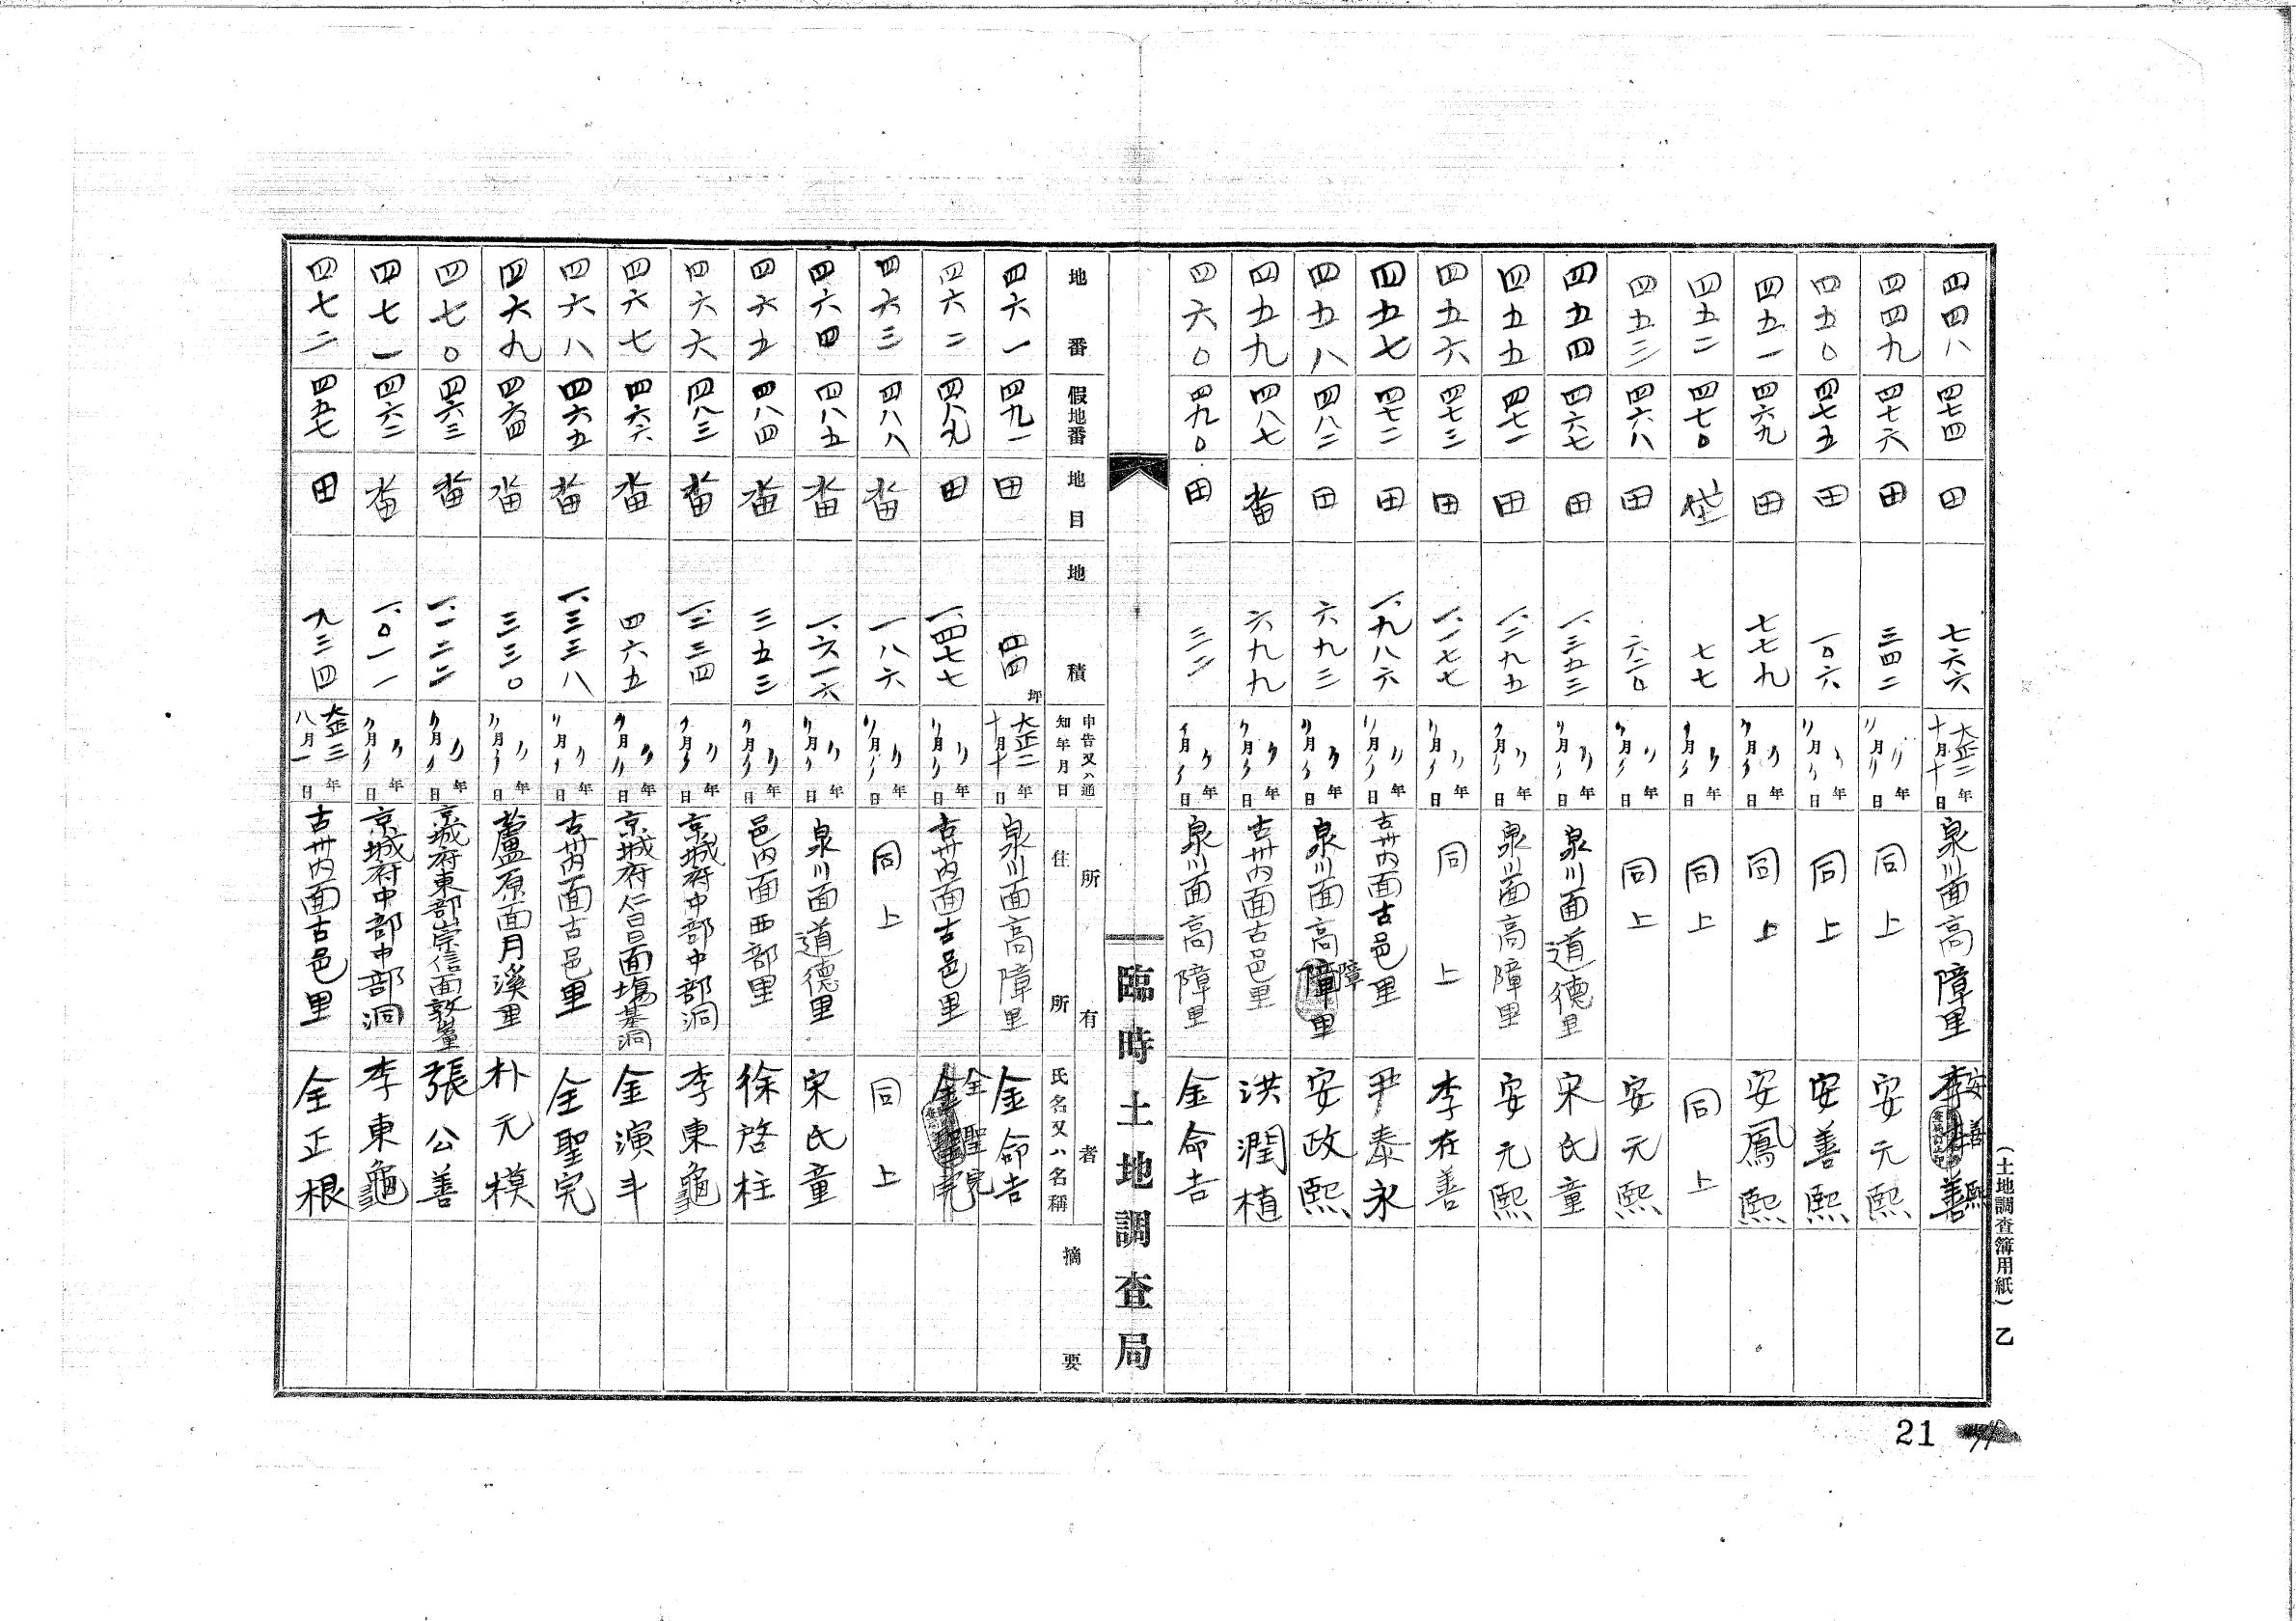 （土地調査簿用紙）乙
四四八 四七四 田 七六六 大正二年十月十日 泉川面高障里 安善熙
四四九 四七六 田 三四二 〃年〃月〃日 同上 安元熙
四五〇 四七五 田 一〇六 〃年〃月〃日 同上 安善熙
四五一 四六九 田 七七九 〃年〃月〃日 同上 安鳳熙
四五二 四七〇 垈 七七 〃年〃月〃日 同上 同上
四五三 四六八 田 六二〇 〃年〃月〃日 同上 安元熙
四五四 四六七 田 一、三五三 〃年〃月〃日 泉川面道德里 宋氏童
四五五 四七一 田 一、二九五 〃年〃月〃日 泉川面高障里 安元熙
四五六 四七三 田 一、一七七 〃年〃月〃日 同上 李在善
四五七 四七二 田 一、九八六 〃年〃月〃日 古州內面古邑里 尹泰永
四五八 四八二 田 六九三 〃年〃月〃日 泉川面高障里 安政熙
四五九 四八七 畓 六九九 〃年〃月〃日 古州內面古邑里 洪潤植
四六〇 四九〇 田 三二 〃年〃月〃日 泉川面高障里 金命吉
臨時土地調査局
地番 假地番 地目 地積 申告又ハ通知年月日 所有者 住所 氏名又ハ名稱 摘要
四六一 四九一 田 四四坪 大正二年十月十日 泉川面高障里 金命吉
四六二 四八九 田 一、四七七 〃年〃月〃日 古州內面古邑里 全聖完
四六三 四八八 畓 一八六 〃年〃月〃日 同上 同上
四六四 四八五 畓 一、六一六 〃年〃月〃日 泉川面道德里 宋氏童
四六五 四八四 畓 三五三 〃年〃月〃日 邑內面西部里 徐啓柱
四六六 四八三 畓 一、二三四 〃年〃月〃日 京城府中部中部洞 李東龜
四六七 四六六 畓 四六五 〃年〃月〃日 京城府仁昌面塲基洞 金演斗
四六八 四六五 畓 一、三三八 〃年〃月〃日 古州內面古邑里 全聖完
四六九 四六四 畓 三三〇 〃年〃月〃日 蘆原面月溪里 朴元模
四七〇 四六三 畓 一、一二二 〃年〃月〃日 京城府東部崇信面敦岩里 張公善
四七一 四六二 畓 一、〇一一 〃年〃月〃日 京城府中部中部洞 李東龜
四七二 四五七 田 九三四 大正三年八月一日 古州內面古邑里 全正根
21